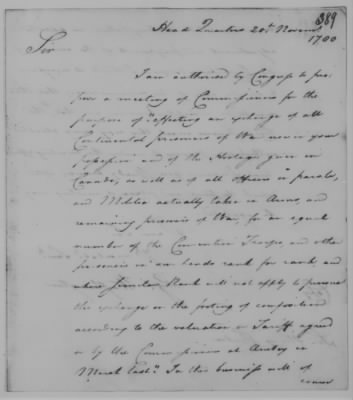 389
Head Quarters 20th Novem
1780
Sir
I am authorised by Congress to pro-
pose a meeting of Commissioners for the
purpose of "effecting an exchange of all
Continental prisoners of War now in your
possession and of the Hostages given in
Canada, as well as of all officers on parole,
and Militia actually taken in Arms, and
remaining prisoners of War, for an equal
number of the Convention Troops and other
prisoners in our hands rank for rank, and
where similar Rank will not apply to pursue
the exchange on the footing of composition
according to the valuation or Tariff agreed
on by the Commissioners at Amboy in
March last." In this business will of
course